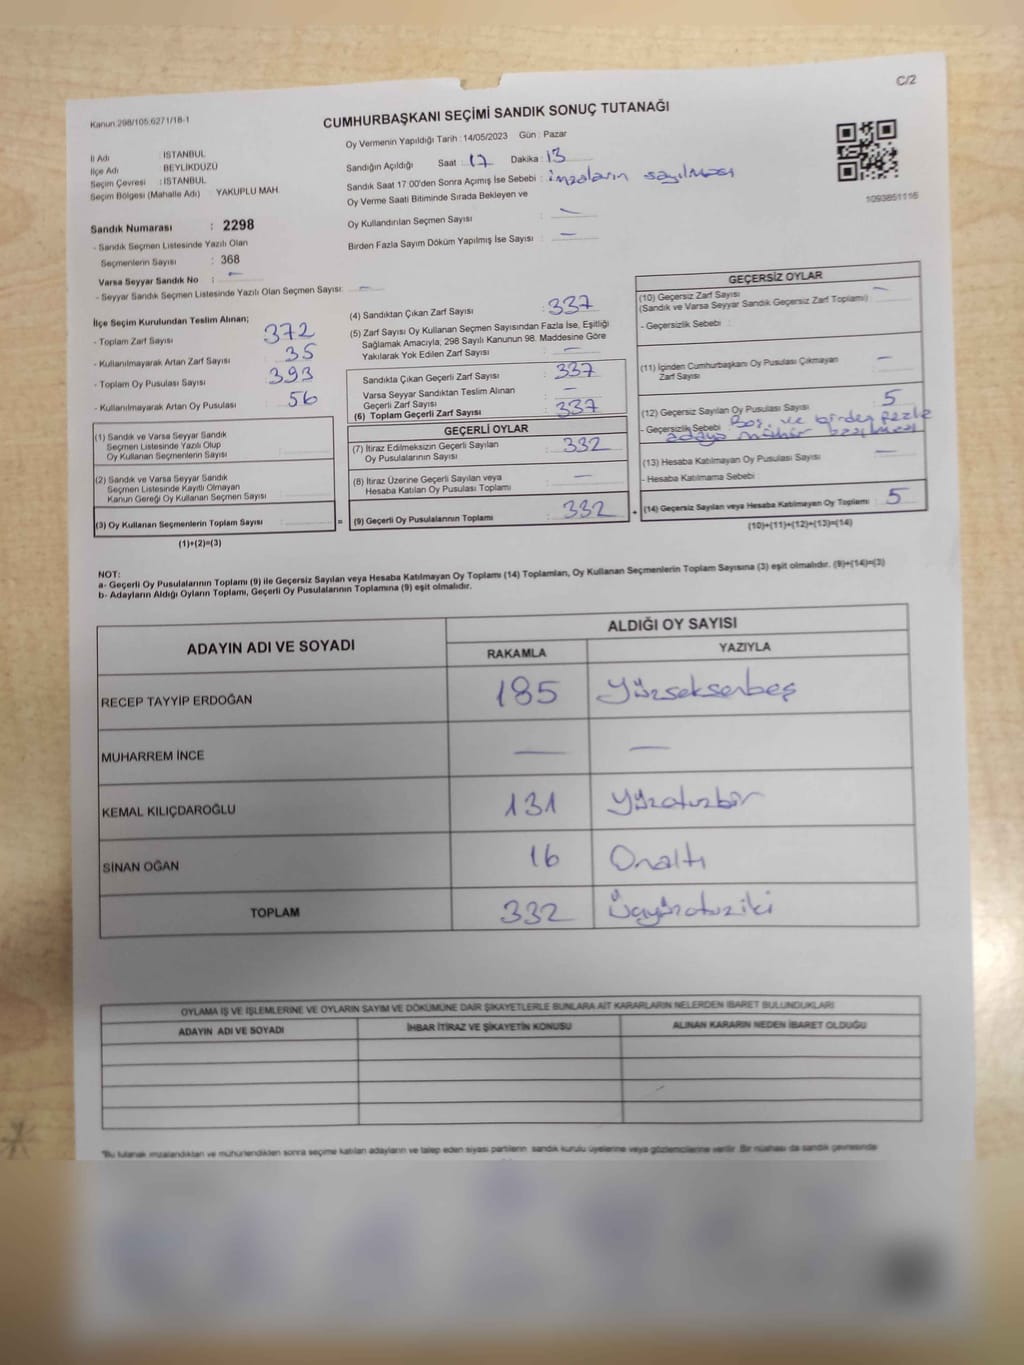 C/2
Kanun:298/105,6271/18-1
CUMHURBAŞKANI SEÇİMİ SANDIK SONUÇ TUTANAĞI
Oy Vermenin Yapıldığı Tarih : 14/05/2023 Gün : Pazar
İl Adı : İSTANBUL
İlçe Adı : BEYLİKDÜZÜ
Seçim Çevresi : İSTANBUL
Seçim Bölgesi (Mahalle Adı) : YAKUPLU MAH.
Sandığın Açıldığı Saat : 17 Dakika : 13
Sandık Saat 17:00'den Sonra Açımış İse Sebebi : imzaların sayılması
Oy Verme Saati Bitiminde Sırada Bekleyen ve
Oy Kullandırılan Seçmen Sayısı : —
Birden Fazla Sayım Döküm Yapılmış İse Sayısı : —
1093851116
Sandık Numarası : 2298
- Sandık Seçmen Listesinde Yazılı Olan
Seçmenlerin Sayısı : 368
Varsa Seyyar Sandık No : —
- Seyyar Sandık Seçmen Listesinde Yazılı Olan Seçmen Sayısı: —
İlçe Seçim Kurulundan Teslim Alınan;
- Toplam Zarf Sayısı : 372
- Kullanılmayarak Artan Zarf Sayısı : 35
- Toplam Oy Pusulası Sayısı : 393
- Kullanılmayarak Artan Oy Pusulası : 56
(1) Sandık ve Varsa Seyyar Sandık
Seçmen Listesinde Yazılı Olup
Oy Kullanan Seçmenlerin Sayısı :
(2) Sandık ve Varsa Seyyar Sandık
Seçmen Listesinde Kayıtlı Olmayan
Kanun Gereği Oy Kullanan Seçmen Sayısı :
(3) Oy Kullanan Seçmenlerin Toplam Sayısı : =
(1)+(2)=(3)
(4) Sandıktan Çıkan Zarf Sayısı : 337
(5) Zarf Sayısı Oy Kullanan Seçmen Sayısından Fazla İse, Eşitliği
Sağlamak Amacıyla; 298 Sayılı Kanunun 98. Maddesine Göre
Yakılarak Yok Edilen Zarf Sayısı : —
Sandıkta Çıkan Geçerli Zarf Sayısı : 337
Varsa Seyyar Sandıktan Teslim Alınan
Geçerli Zarf Sayısı : —
(6) Toplam Geçerli Zarf Sayısı : 337
GEÇERLİ OYLAR
(7) İtiraz Edilmeksizin Geçerli Sayılan
Oy Pusulalarının Sayısı : 332
(8) İtiraz Üzerine Geçerli Sayılan veya
Hesaba Katılan Oy Pusulası Toplamı : —
(9) Geçerli Oy Pusulalarının Toplamı : 332 +
GEÇERSİZ OYLAR
(10) Geçersiz Zarf Sayısı : —
(Sandık ve Varsa Seyyar Sandık Geçersiz Zarf Toplamı)
- Geçersizlik Sebebi :
(11) İçinden Cumhurbaşkanı Oy Pusulası Çıkmayan
Zarf Sayısı : —
(12) Geçersiz Sayılan Oy Pusulası Sayısı : 5
- Geçersizlik Sebebi : Boş ve birden fazla
adaya mühür basılması
(13) Hesaba Katılmayan Oy Pusulası Sayısı : —
- Hesaba Katılmama Sebebi
(14) Geçersiz Sayılan veya Hesaba Katılmayan Oy Toplamı : 5
(10)+(11)+(12)+(13)=(14)
NOT:
a- Geçerli Oy Pusulalarının Toplamı (9) ile Geçersiz Sayılan veya Hesaba Katılmayan Oy Toplamı (14) Toplamları, Oy Kullanan Seçmenlerin Toplam Sayısına (3) eşit olmalıdır. (9)+(14)=(3)
b- Adayların Aldığı Oyların Toplamı, Geçerli Oy Pusulalarının Toplamına (9) eşit olmalıdır.
ADAYIN ADI VE SOYADI ALDIĞI OY SAYISI
RAKAMLA YAZIYLA
RECEP TAYYİP ERDOĞAN 185 Yüzseksenbeş
MUHARREM İNCE — —
KEMAL KILIÇDAROĞLU 131 Yüzotuzbir
SİNAN OĞAN 16 Onaltı
TOPLAM 332 Üçyüzotuziki
OYLAMA İŞ VE İŞLEMLERİNE VE OYLARIN SAYIM VE DÖKÜMÜNE DAİR ŞİKAYETLERLE BUNLARA AİT KARARLARIN NELERDEN İBARET BULUNDUKLARI
ADAYIN ADI VE SOYADI İHBAR İTİRAZ VE ŞİKAYETİN KONUSU ALINAN KARARIN NEDEN İBARET OLDUĞU
"Bu tutanak imzalandıktan ve mühürlendikten sonra seçime katılan adayların ve talep eden siyasi partilerin sandık kurulu üyelerine veya gözlemcilerine verilir. Bir nüshası da sandık çevresinde